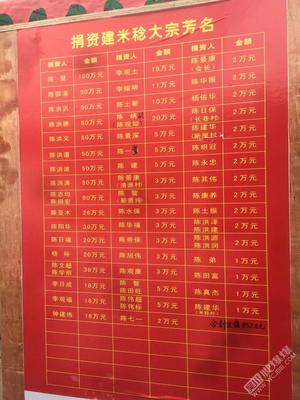 捐资建米稔大宗芳名
捐资人 金额 捐资人 金额 捐资人 金额
100万元 李观土 18万元 陈景康（会长） 2万元
50万元 李耀明 11万元 陈华振 2万元
陈洪汎 50万元 陈土新 10万元 杨佑华 2万元
陈洪德 50万元 20万元 陈日保（长巷村） 2万元
陈洪义 50万元 陈景深 5万元 陈建华 2万元
陈洪道 50万元 陈一 5万元 陈明冠 2万元
陈洪波 50万元 陈建 5万元 陈永忠 2万元
陈洪涛 50万元 陈景康 5万元 陈其伟 2万元
陈志均 80万元 陈智 5万元 陈康养 2万元
陈亚木 26万元 陈水保 3万元 陈土振 2万元
陈阳华 30万元 陈华福 3万元 陈洪泽 陈洪建 2万元
陈日福 20万元 陈帝保 3万元 陈洪源 陈洪润 2万元
杨标 20万元 陈旭伟 3万元 陈弟 1万元
陈文超 陈学明 36万元 陈观康 3万元 陈田富 1万元
李日成 18万元 陈智 陈田旺 5万元 陈真杰 1万元
李观福 18万元 陈伟超 陈伟标 5万元 陈建华 1万元
钟建伟 18万元 陈七一 2万元